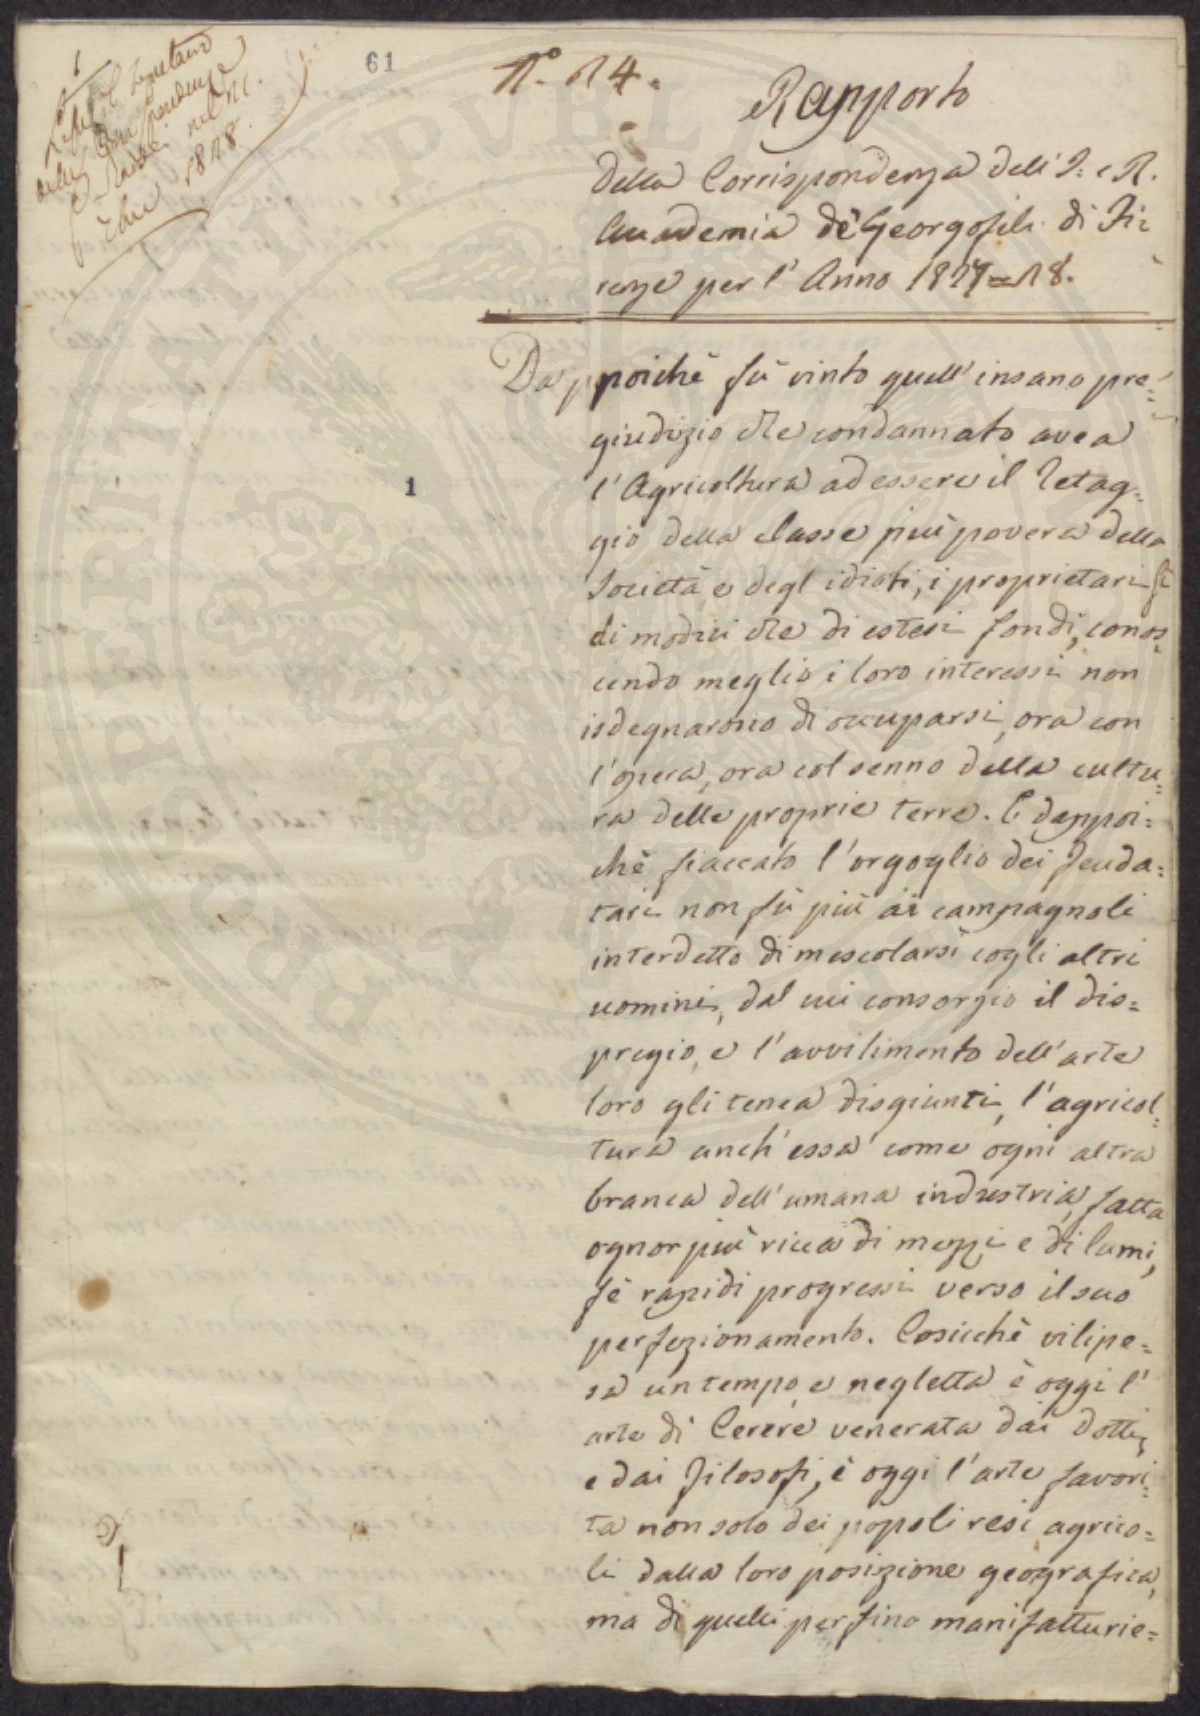 61
N.° 14.
Rapporto
della Corrispondenza dell' I. e R.
Accademia de' Georgofili di Fi=
renze per l' Anno 1817=18.
Dappoichè fù vinto quell' insano pre=
giudizio che condannato avea
l' Agricoltura ad essere il Retag=
gio della classe più povera della
Società e degl' idioti, i proprietari sì
di modici che di estesi fondi, conos=
cendo meglio i loro interessi non
isdegnarono di occuparsi, ora con
l' opera, ora col senno della cultu=
ra delle proprie terre. E dappoi=
chè fiaccato l' orgoglio dei feuda=
tari non fù più ai campagnoli
interdetto di mescolarsi cogli altri
uomini, dal cui consorzio il dis=
pregio, e l' avvilimento dell' arte
loro gli tenea disgiunti, l' agricol=
tura anch' essa come ogni altra
branca dell' umana industria, fatta
ognor più ricca di mezzi e di lumi,
fè rapidi progressi verso il suo
perfezionamento. Cosicchè vilipe=
sa un tempo e negletta è oggi l'
arte di Cerere venerata dai dotti,
e dai filosofi, è oggi l' arte favori=
ta non solo dei popoli resi agrico=
li dalla loro posizione geografica,
ma di quelli perfino manifatturie=
1
1818.